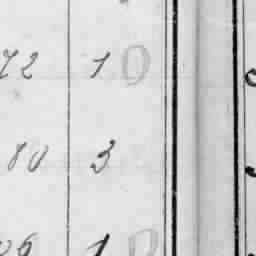 72 1 0
80 3
06 1